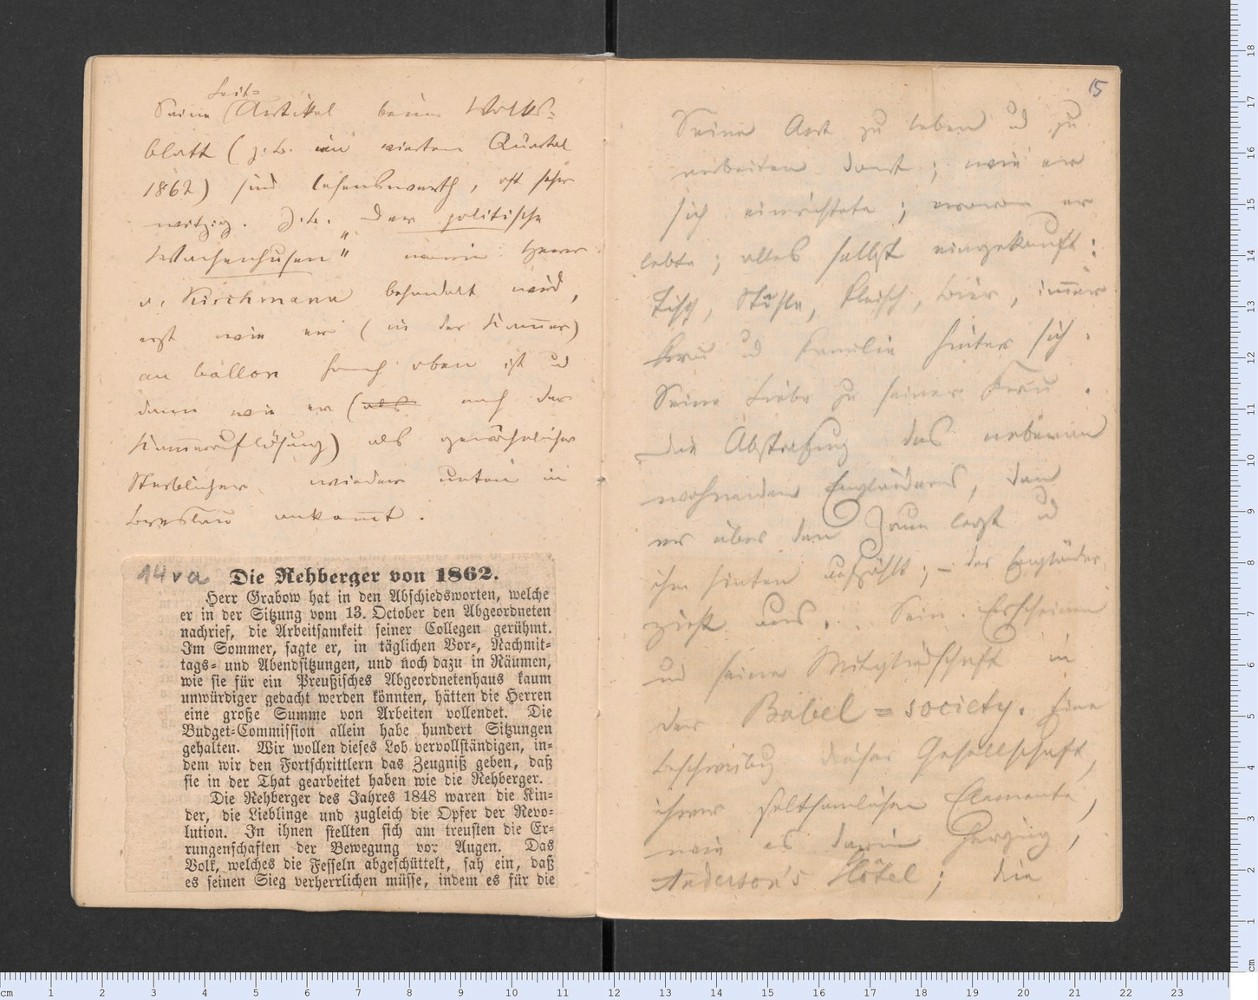 Leit=
Seine Artikel beim Volks=
blatt (z. B. im vierten Quartal
1862) sind lesenswerth, oft sehr
witzig. Z. B. Der politische
Wachenhusen" worin Herr
v. Kirchmann behandelt wird,
erst wie er (in der Kammer)
en ballon hoch oben ist ud
dann wie er (als nach der
Kammerauflösung) als gewöhnlicher
Sterblicher wieder unten in
Breslau ankommt.
14va
Die Rehberger von 1862.
Herr Grabow hat in den Abschiedsworten, welche
er in der Sitzung vom 13. October den Abgeordneten
nachrief, die Arbeitsamkeit seiner Collegen gerühmt.
Im Sommer, sagte er, in täglichen Vor-, Nachmit-
tags- und Abendsitzungen, und noch dazu in Räumen,
wie sie für ein Preußisches Abgeordnetenhaus kaum
unwürdiger gedacht werden könnten, hätten die Herren
eine große Summe von Arbeiten vollendet. Die
Budget-Commission allein habe hundert Sitzungen
gehalten. Wir wollen dieses Lob vervollständigen, in-
dem wir den Fortschrittlern das Zeugniß geben, daß
sie in der That gearbeitet haben wie die Rehberger.
Die Rehberger des Jahres 1848 waren die Kin-
der, die Lieblinge und zugleich die Opfer der Revo-
lution. In ihnen stellten sich am treusten die Er-
rungenschaften der Bewegung vor Augen. Das
Volk, welches die Fesseln abgeschüttelt, sah ein, daß
es seinen Sieg verherrlichen müsse, indem es für die
15
Seine Art zu leben ud zu
arbeiten dort; wie er
sich einrichtete; wovon er
lebte; alles selbst eingekauft:
Tisch, Stühle, Fleisch, Bier, immer
Frau ud Familie hinter sich.
Seine Liebe zu seiner Frau.
Die Abstrafung des nebenan
wohnenden Engländers, den
er über den Zaun legt ud
ihm hinten aufzählt; – der Engländer
zieht aus. Sein Erscheinen
ud seine Mitgliedschaft in
der Babel=society. Eine
Beschreibung dieser Gesellschaft,
ihrer seltsamlichen Elemente,
wie es darin herging,
Anderson's Hôtel; die